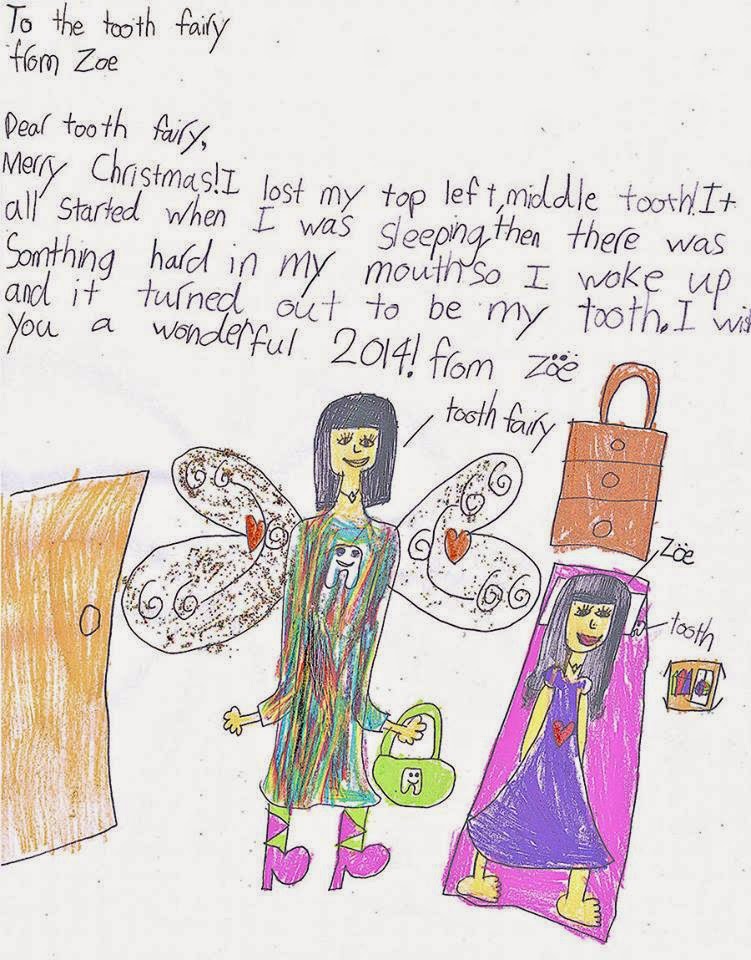 To the tooth fairy
from Zoe
Dear tooth fairy,
Merry Christmas! I lost my top left, middle tooth! It
all started when I was sleeping, then there was
Somthing hard in my mouth so I woke up
and it turned out to be my tooth. I wish
you a wonderful 2014! from Zoë
tooth fairy
Zoë
tooth